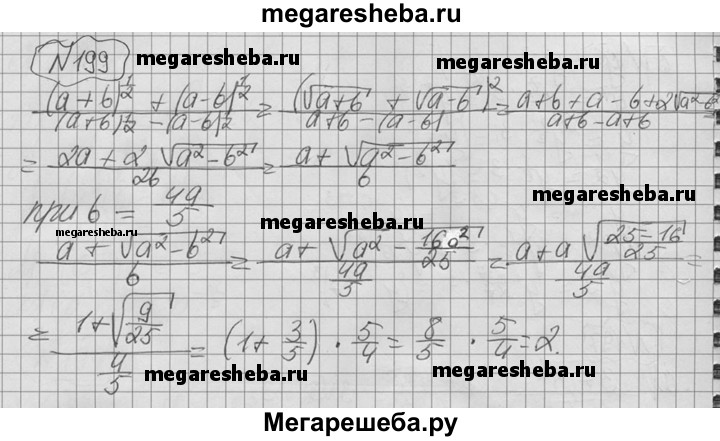 megaresheba.ru
N199 megaresheba.ru megaresheba.ru
((a+b)^{1/2} + (a-b)^{1/2})/((a+b)^{1/2} - (a-b)^{1/2}) = (√(a+b) + √(a-b))^2/(a+b-(a-b)) = (a+b+a-b+2√(a^2-b^2))/(a+b-a+b) =
= (2a+2√(a^2-b^2))/(2b) = (a+√(a^2-b^2))/b
при b = 4a/5 megaresheba.ru megaresheba.ru
(a+√(a^2-b^2))/b = (a+√(a^2-16a^2/25))/(4a/5) = (a+a√((25-16)/25))/(4a/5) =
= (1+√(9/25))/(4/5) = (1+3/5) · 5/4 = 8/5 · 5/4 = 2.
megaresheba.ru megaresheba.ru
Мегарешеба.ру